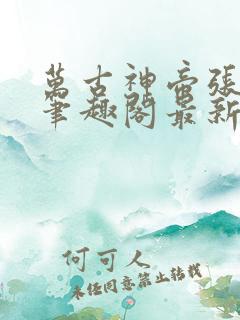 萬古神帝張
筆趣閣最新
何可人
未经同意禁止转载